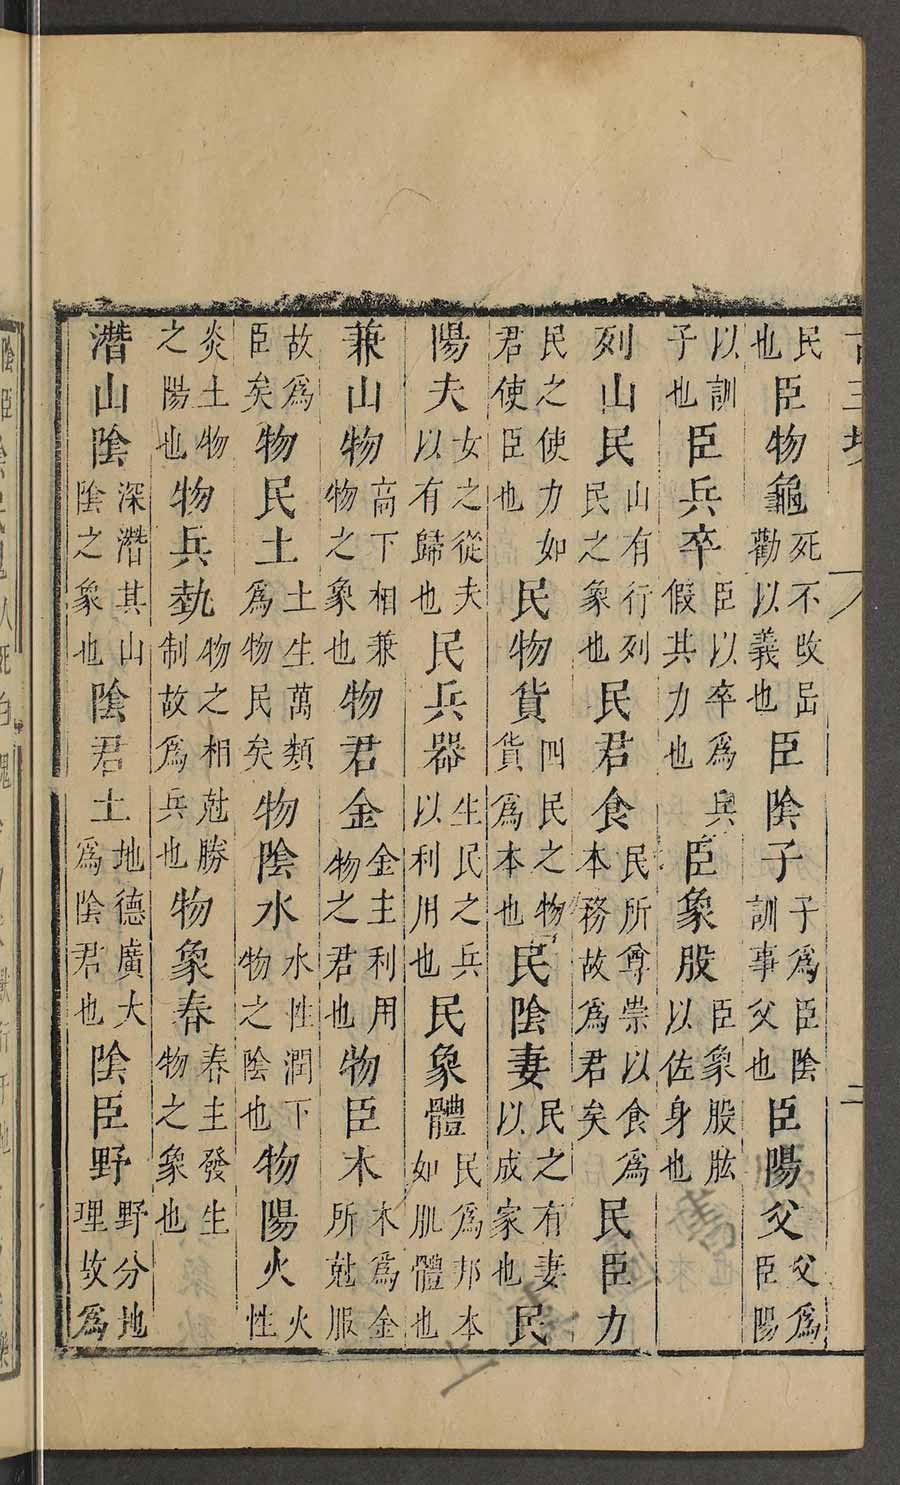 古三墳 二
民也臣物龜死不改勸以義也臣陰子子爲臣陰訓事父也臣陽父父爲臣陽
以訓子也臣兵卒臣以卒爲兵假其力也臣象股臣象股肱以佐身也
列山民山有行列民之象也民君食民所尊崇以食爲本務故爲君矣民臣力
民之使力如君使臣也民物貨四民之物貨爲本也民陰妻民之有妻以成家也民
陽夫女之從夫以有歸也民兵器生民之兵以利用也民象體民爲邦本如肌體也
兼山物高下相兼物之象也物君金金主利用物之君也物臣木木爲金所尅服
故爲臣矣物民土土生萬類爲物民矣物陰水水性潤下物之陰也物陽火火性
炎土物之陽也物兵執物之相尅勝制故爲兵也物象春春主發生物之象也
潛山陰深潛其山陰之象也陰君土地德廣大爲陰君也陰臣野野分地理故爲